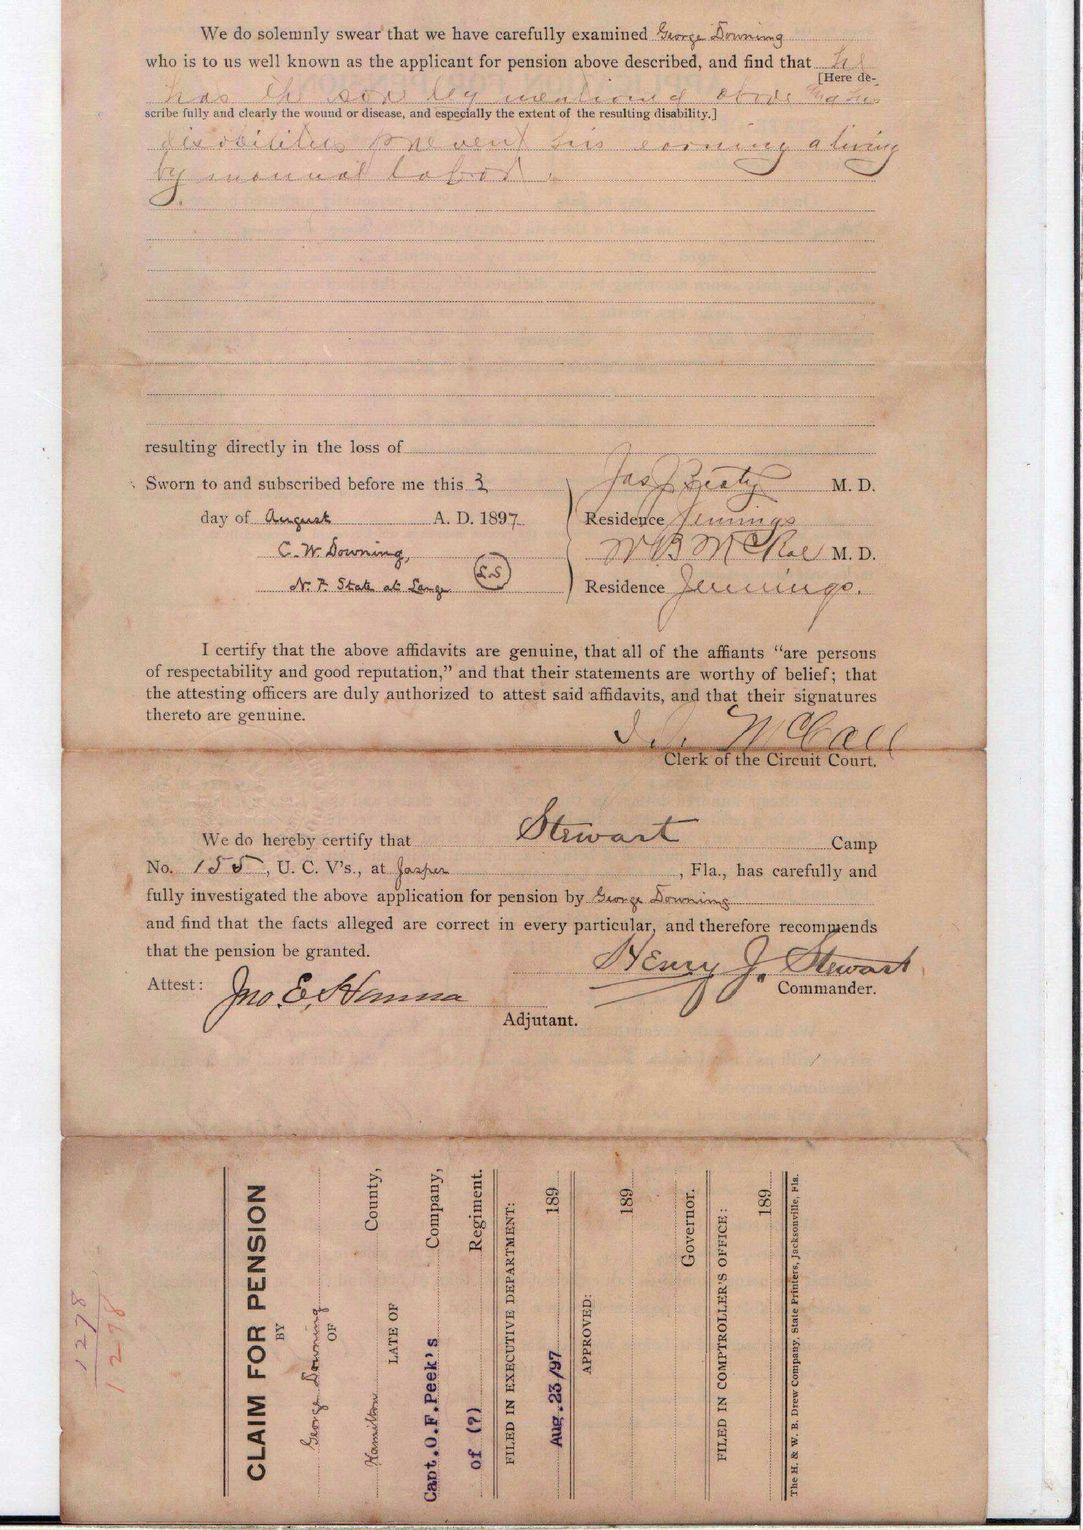 We do solemnly swear that we have carefully examined George Downing
who is to us well known as the applicant for pension above described, and find that he
[Here de-
has the sore leg mentioned above his
scribe fully and clearly the wound or disease, and especially the extent of the resulting disability.]
disabilities prevent his earning a living
by manual labor.
resulting directly in the loss of
Sworn to and subscribed before me this 3
day of August A. D. 1897
C. W. Downing,
N. P. State at Large
L.S
Jas J Beaty M. D.
Residence Jennings
W B McRae M. D.
Residence Jennings.
I certify that the above affidavits are genuine, that all of the affiants "are persons
of respectability and good reputation," and that their statements are worthy of belief; that
the attesting officers are duly authorized to attest said affidavits, and that their signatures
thereto are genuine.
McCall
Clerk of the Circuit Court.
We do hereby certify that Stewart Camp
No. 155, U. C. V's., at Jasper, Fla., has carefully and
fully investigated the above application for pension by George Downing
and find that the facts alleged are correct in every particular, and therefore recommends
that the pension be granted.
Henry J. Stewart
Commander.
Attest: Jno. E. Hanna
Adjutant.
1278
1278
CLAIM FOR PENSION
BY
George Downing
OF
Hamilton County,
LATE OF
Capt.O.F.Peek's Company,
of (?) Regiment.
FILED IN EXECUTIVE DEPARTMENT:
Aug.23/97 189
APPROVED:
189
Governor.
FILED IN COMPTROLLER'S OFFICE:
189
The H. & W. B. Drew Company, State Printers, Jacksonville, Fla.